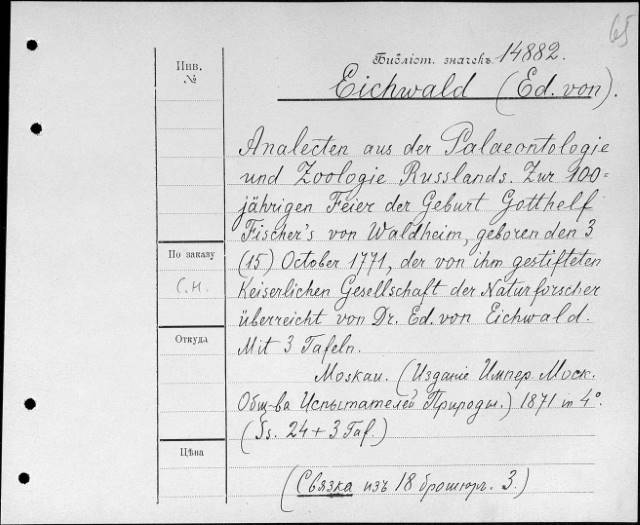 65
Библіот. значекъ 14882.
Инв.
№
Eichwald (Ed. von).
Analecten aus der Palaeontologie
und Zoologie Russlands. Zur 100=
jährigen Feier der Geburt Gotthelf
Fischer's von Waldheim, geboren den 3
По заказу
(15) October 1771, der von ihm gestifteten
С.Н.
Keiserlichen Gesellschaft der Naturforscher
überreicht von Dr. Ed. von Eichwald.
Откуда
Mit 3 Tafeln.
Moskau. (Изданіе Импер. Моск.
Общ-ва Испытателей Природы.) 1871 in 4°.
(Ss. 24 + 3 Taf.)
Цѣна
(Связка изъ 18 брошюр. 3.)